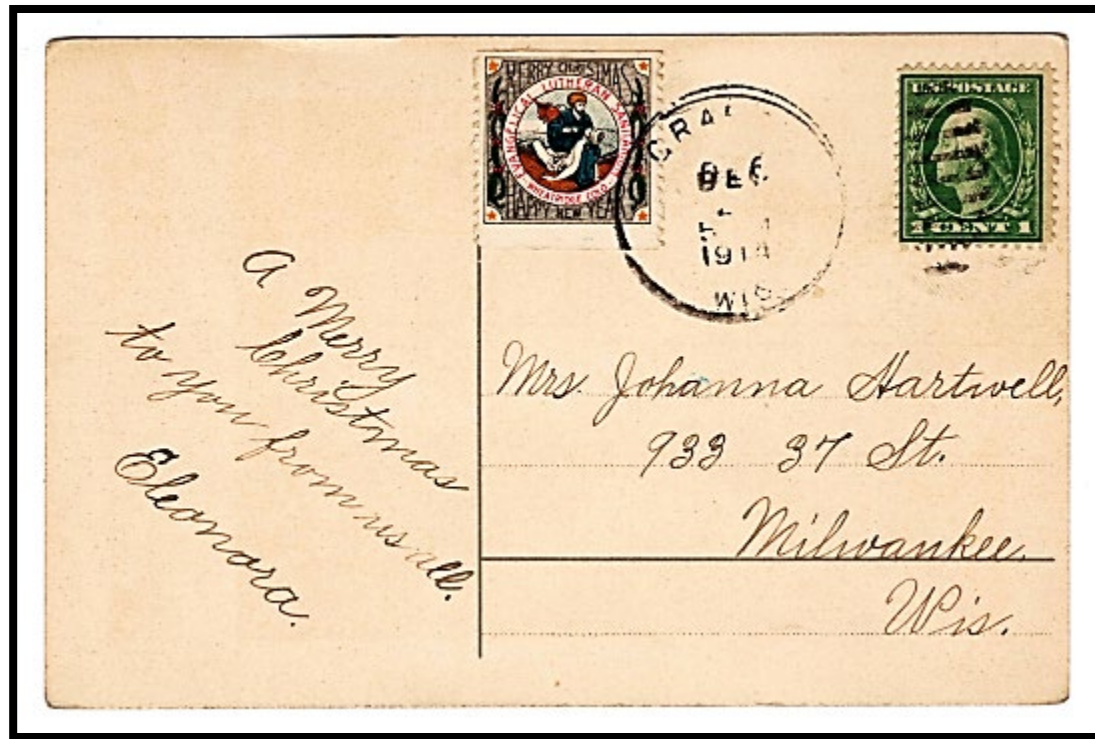 MERRY CHRISTMAS
EVANGELICAL LUTHERAN SANITARIUM
WHEATRIDGE COLO
HAPPY NEW YEAR
DEC
1914
WIS
U.S. POSTAGE
1 CENT 1
A Merry
Christmas
to you from us all.
Eleonora.
Mrs. Johanna Hartwell,
933 37 St.
Milwaukee,
Wis.